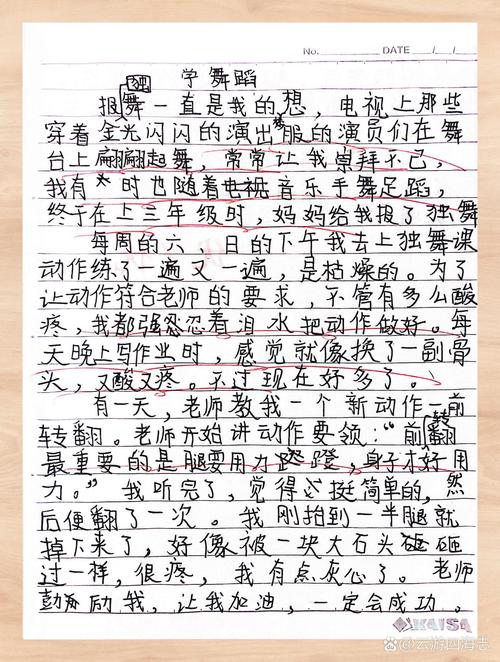 No. DATE / /
学舞蹈
报独舞一直是我的想，电视上那些
穿着金光闪闪的演出服的演员们在舞
台上翩翩起舞，常常让我崇拜不已，
我有时也随着电视音乐手舞足蹈，
终于在上三年级时，妈妈给我报了独舞
每周的六、日的下午我去上独舞课
动作练了一遍又一遍，是枯燥的。为了
让动作符合老师的要求，不管有多么酸
疼，我都强忍忍着泪水把动作做好。每
天晚上写作业时，感觉就像换了一副骨
头，又酸又疼。不过现在好多了。
有一天，老师教我一个新动作一前
转翻。老师开始讲动作要领：“前转翻
最重要的是腿要用力蹬，身子才好用
力。”我听完了，觉得挺简单的，然
后便翻了一次。我刚拍到一半腿就
掉下来了，好像被一块大石头砸砸
过一样，很疼，我有点灰心了。老师
励我，让我加油，一定会成功。
KAISA
@云游四海志